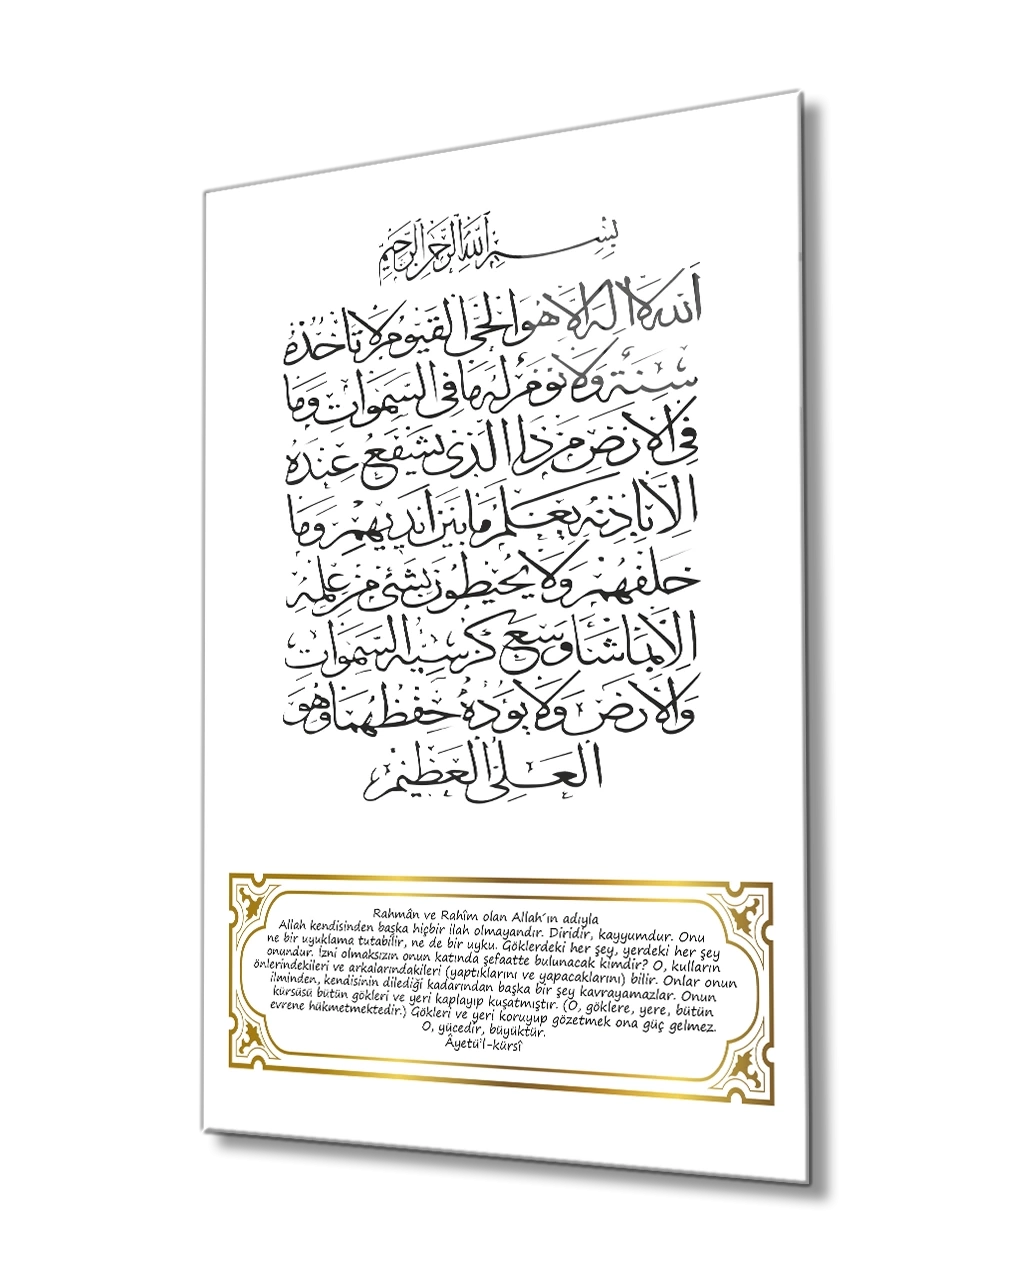 بِسْمِ اللّٰهِ الرَّحْمٰنِ الرَّحِيمِ
اَللّٰهُ لَا اِلٰهَ اِلَّا هُوَ الْحَىُّ الْقَيُّومُ لَا تَأْخُذُهُ
سِنَةٌ وَلَا نَوْمٌ لَهُ مَا فِى السَّمٰوَاتِ وَمَا
فِى الْاَرْضِ مَنْ ذَا الَّذِى يَشْفَعُ عِنْدَهُ
اِلَّا بِاِذْنِهِ يَعْلَمُ مَا بَيْنَ اَيْدِيهِمْ وَمَا
خَلْفَهُمْ وَلَا يُحِيطُونَ بِشَىْءٍ مِنْ عِلْمِهِ
اِلَّا بِمَا شَاءَ وَسِعَ كُرْسِيُّهُ السَّمٰوَاتِ
وَالْاَرْضَ وَلَا يَؤُدُهُ حِفْظُهُمَا وَهُوَ
الْعَلِىُّ الْعَظِيمُ
Rahmân ve Rahîm olan Allah´ın adıyla
Allah kendisinden başka hiçbir ilah olmayandır. Diridir, kayyumdur. Onu
ne bir uyuklama tutabilir, ne de bir uyku. Göklerdeki her şey, yerdeki her şey
onundur. İzni olmaksızın onun katında şefaatte bulunacak kimdir? O, kulların
önlerindekileri ve arkalarındakileri (yaptıklarını ve yapacaklarını) bilir. Onlar onun
ilminden, kendisinin dilediği kadarından başka bir şey kavrayamazlar. Onun
kürsüsü bütün gökleri ve yeri kaplayıp kuşatmıştır. (O, göklere, yere, bütün
evrene hükmetmektedir.) Gökleri ve yeri koruyup gözetmek ona güç gelmez.
O, yücedir, büyüktür.
Âyetü'l-kürsî